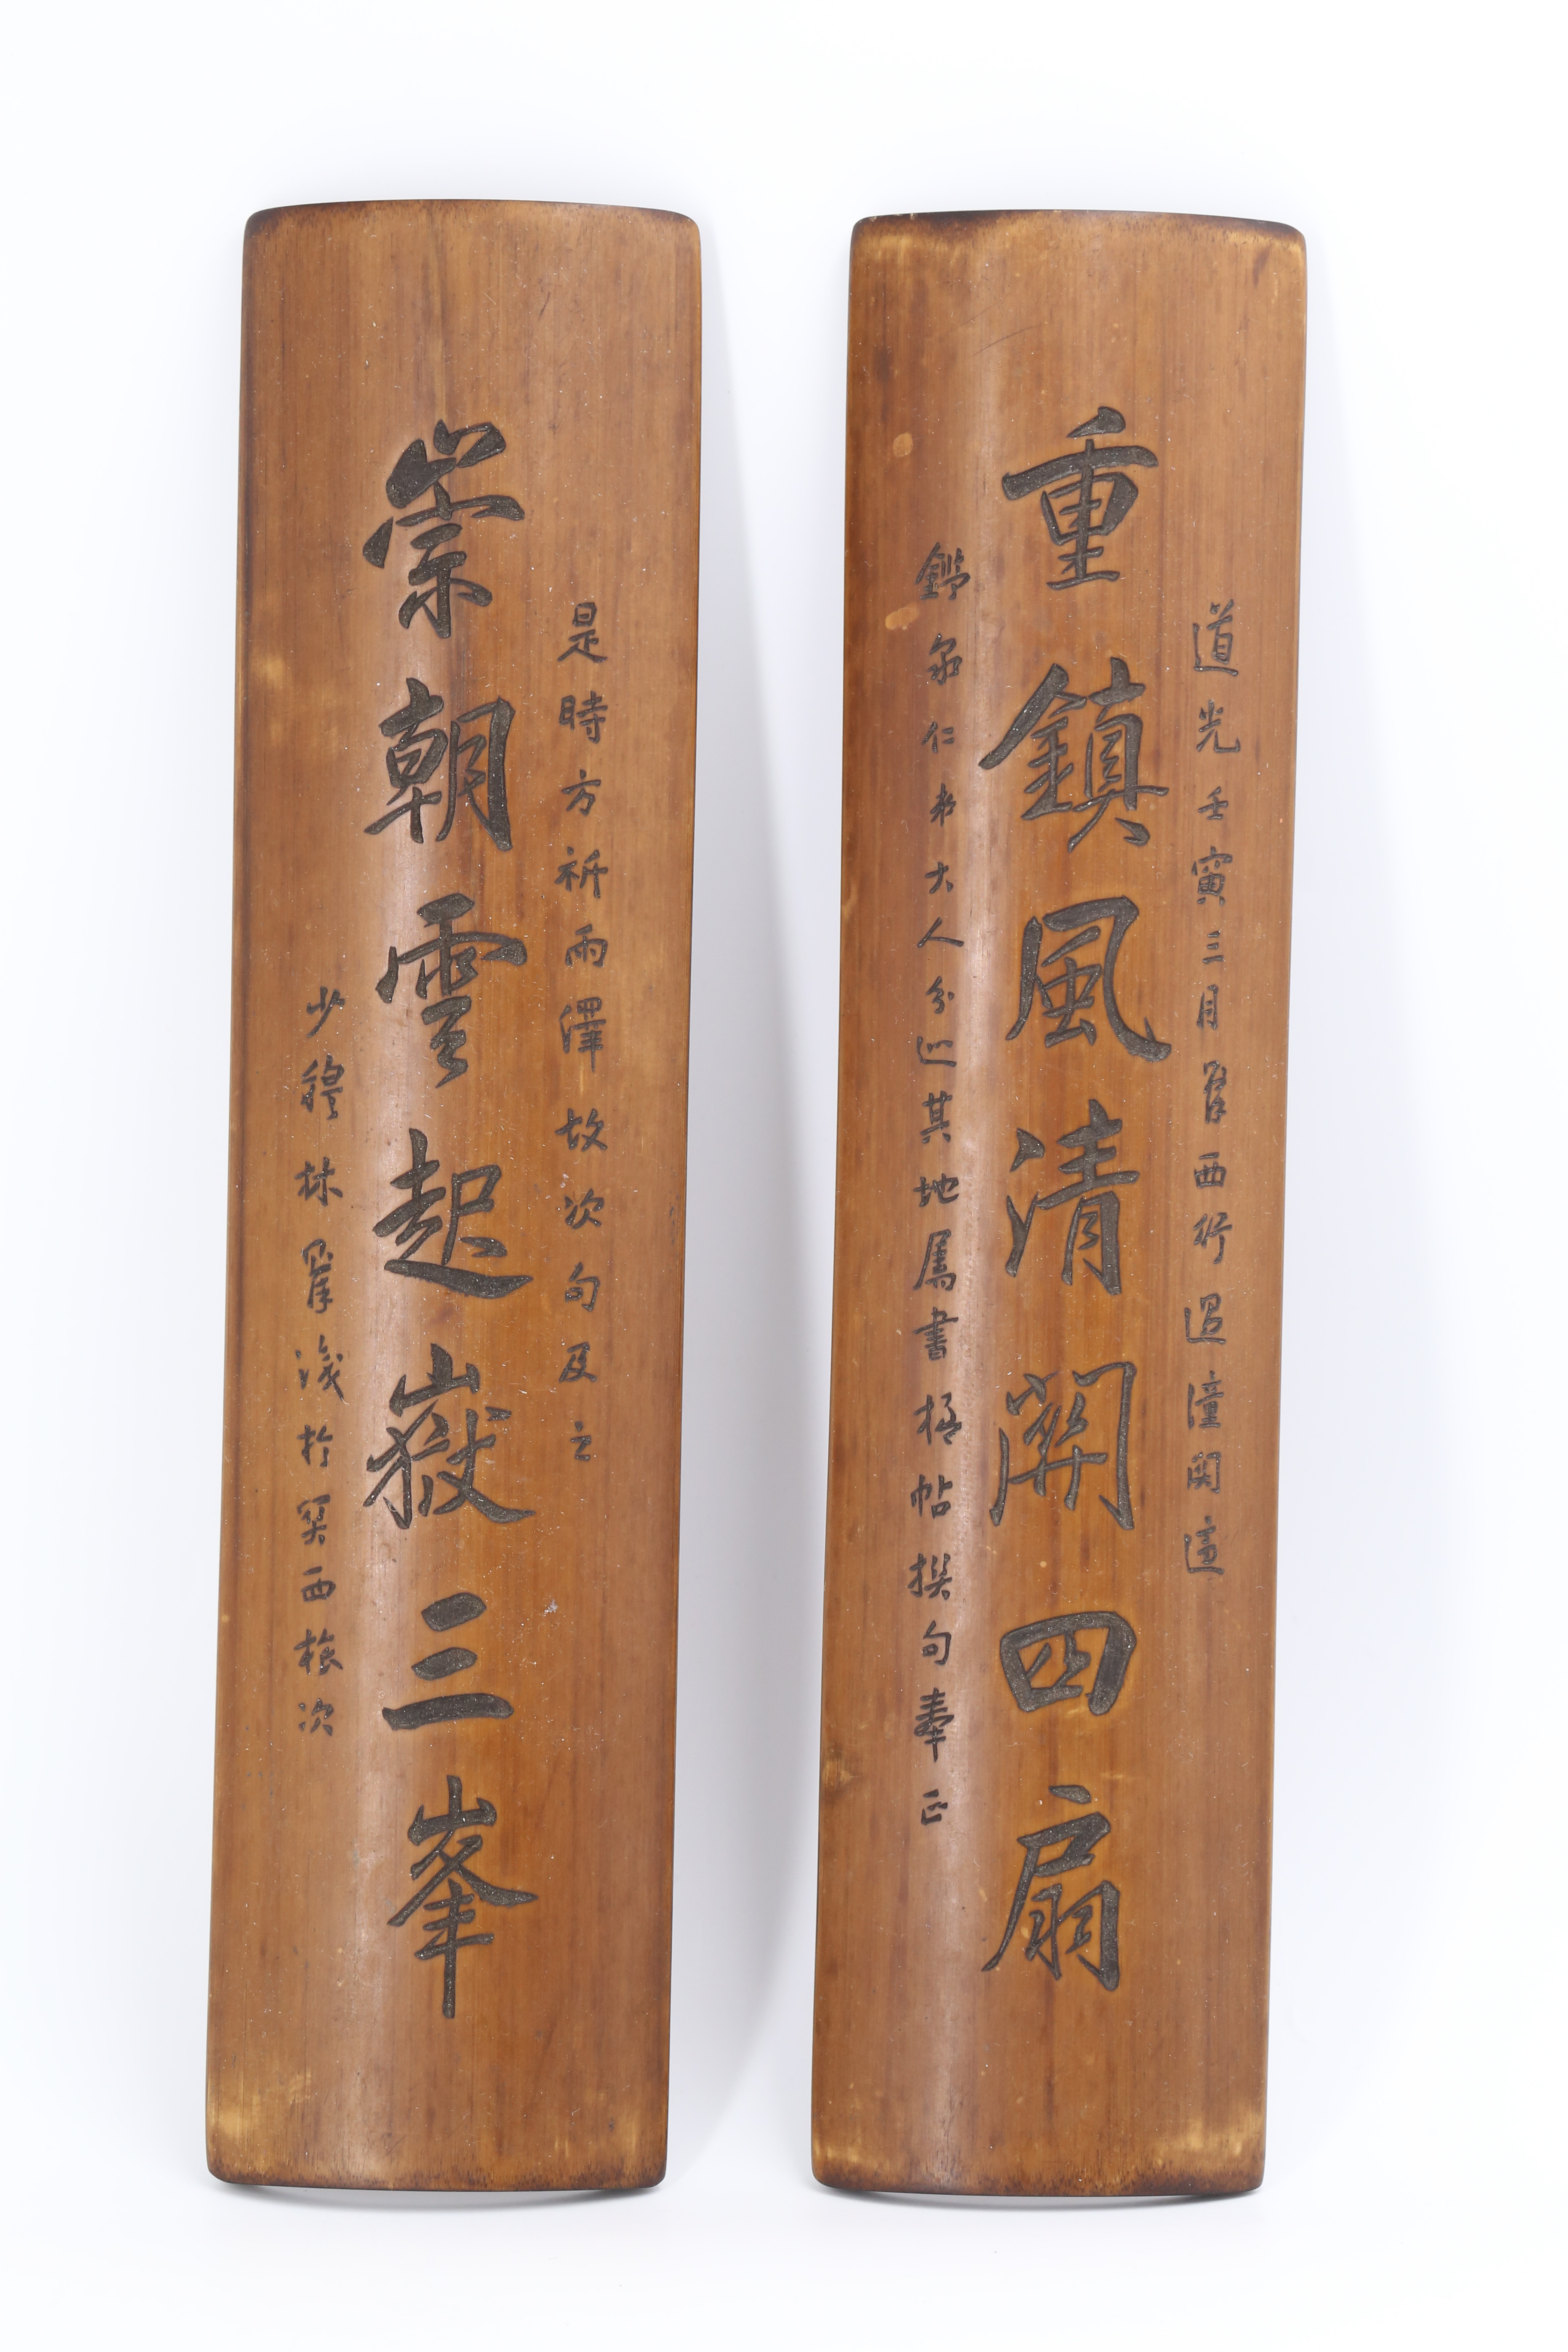 道光壬寅三月則徐西行過潼關適
重鎮風清關四扇
鑑泉仁弟大人分巡其地屬書楹帖撰句奉正
是時方祈雨澤故次句及之
崇朝雲起嶽三峯
少穆林則徐識於關西旅次